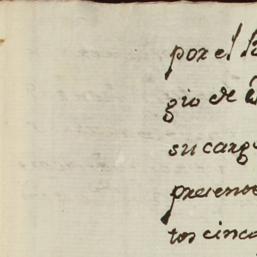 por el
gio de
su carg
presen
tos cinc